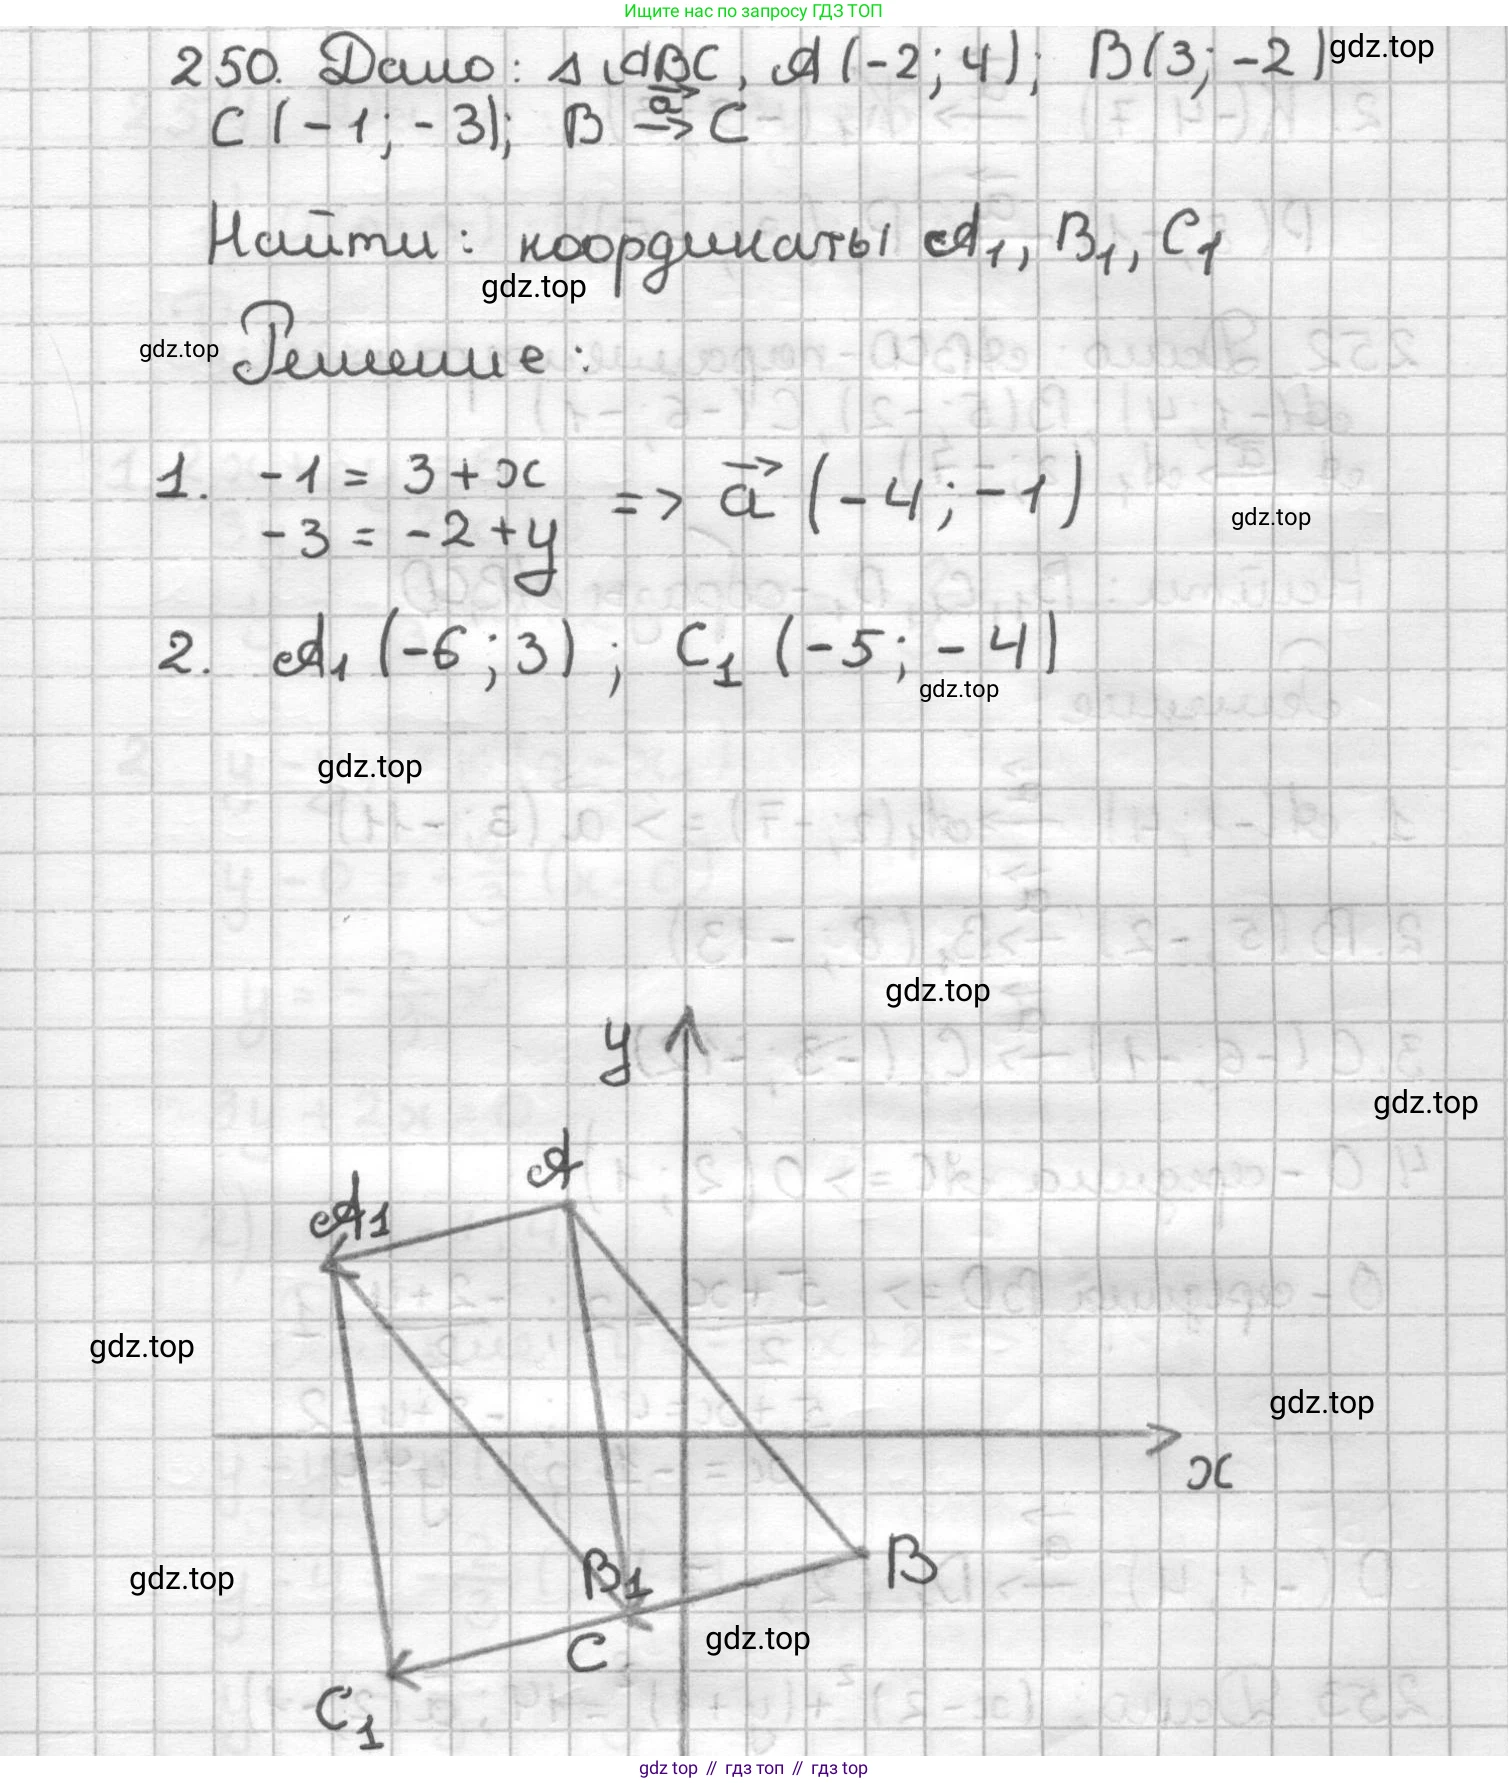 Ищите нас по запросу ГДЗ ТОП
250. Дано: △ABC, A(-2; 4); B(3; -2) gdz.top
C(-1; -3); B →a C
Найти: координаты A₁, B₁, C₁
gdz.top
gdz.top
Решение:
1. -1 = 3 + x
-3 = -2 + y
=> a⃗ (-4; -1)
gdz.top
2. A₁ (-6; 3); C₁ (-5; -4)
gdz.top
gdz.top
gdz.top
y
gdz.top
A
A₁
gdz.top
gdz.top
x
B₁
B
gdz.top
C
gdz.top
C₁
gdz top // гдз топ // гдз top